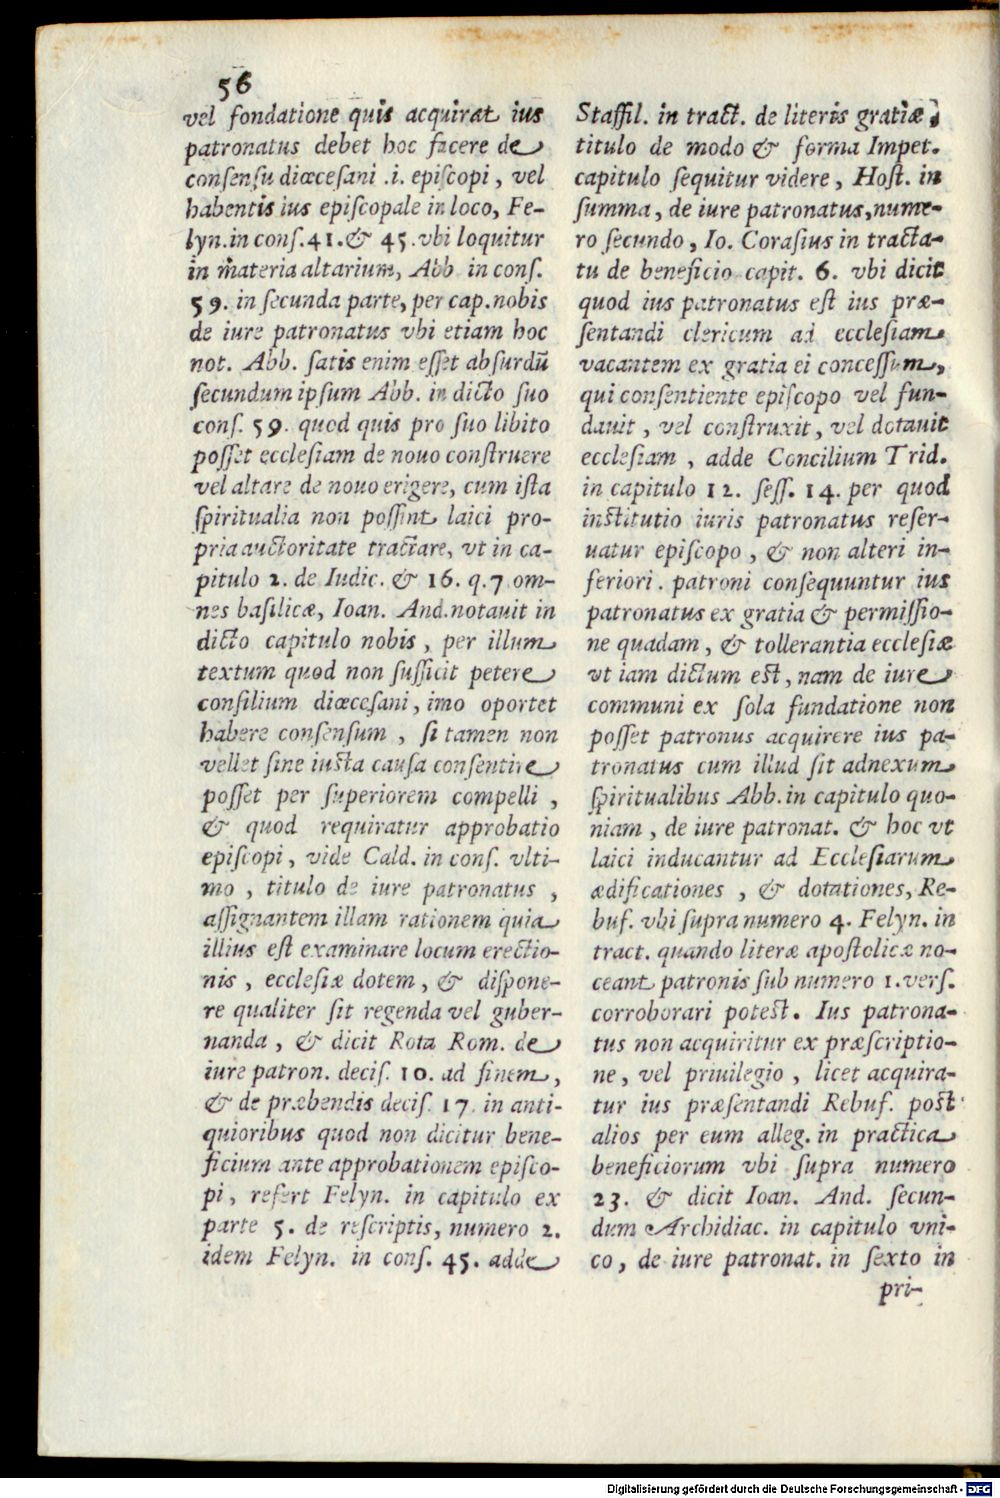 56
vel fondatione quis acquirat ius
patronatus debet hoc facere de
conſenſu diœceſani .i. epiſcopi, vel
habentis ius epiſcopale in loco, Fe-
lyn. in conſ. 41. & 45. vbi loquitur
in materia altarium, Abb in conſ.
59. in ſecunda parte, per cap. nobis
de iure patronatus vbi etiam hoc
not. Abb. ſatis enim eſſet abſurdũ
ſecundum ipſum Abb. in dicto ſuo
conſ. 59. quod quis pro ſuo libito
poſſet eccleſiam de nouo conſtruere
vel altare de nouo erigere, cum iſta
ſpiritualia non poſſint laici pro-
pria auctoritate tractare, vt in ca-
pitulo 2. de Iudic. & 16. q. 7 om-
nes baſilicæ, Ioan. And. notauit in
dicto capitulo nobis, per illum
textum quod non ſufficit petere
conſilium diœceſani, imo oportet
habere conſenſum, ſi tamen non
vellet ſine iuſta cauſa conſentire
poſſet per ſuperiorem compelli,
& quod requiratur approbatio
epiſcopi, vide Cald. in conſ. vlti-
mo, titulo de iure patronatus,
aſſignantem illam rationem quia
illius eſt examinare locum erectio-
nis, eccleſiæ dotem, & diſpone-
re qualiter ſit regenda vel guber-
nanda, & dicit Rota Rom. de
iure patron. deciſ. 10. ad finem,
& de præbendis deciſ. 17. in anti-
quioribus quod non dicitur bene-
ficium ante approbationem epiſco-
pi, refert Felyn. in capitulo ex
parte 5. de reſcriptis, numero 2.
idem Felyn. in conſ. 45. adde
Staffil. in tract. de literis gratiæ,
titulo de modo & forma Impet.
capitulo ſequitur videre, Hoſt. in
ſumma, de iure patronatus, nume-
ro ſecundo, Io. Coraſius in tracta-
tu de beneficio capit. 6. vbi dicit
quod ius patronatus eſt ius præ-
ſentandi clericum ad eccleſiam
vacantem ex gratia ei conceſſum,
qui conſentiente epiſcopo vel fun-
dauit, vel conſtruxit, vel dotauit
eccleſiam, adde Concilium Trid.
in capitulo 12. ſeſſ. 14. per quod
inſtitutio iuris patronatus reſer-
uatur epiſcopo, & non alteri in-
feriori. patroni conſequuntur ius
patronatus ex gratia & permiſſio-
ne quadam, & tollerantia eccleſiæ
vt iam dictum eſt, nam de iure
communi ex ſola fundatione non
poſſet patronus acquirere ius pa-
tronatus cum illud ſit adnexum
ſpiritualibus Abb. in capitulo quo-
niam, de iure patronat. & hoc vt
laici inducantur ad Eccleſiarum
ædificationes, & dotationes, Re-
buf. vbi ſupra numero 4. Felyn. in
tract. quando literæ apoſtolicæ no-
ceant patronis ſub numero 1. verſ.
corroborari poteſt. Ius patrona-
tus non acquiritur ex præſcriptio-
ne, vel priuilegio, licet acquira-
tur ius præſentandi Rebuf. poſt
alios per eum alleg. in practica
beneficiorum vbi ſupra numero
23. & dicit Ioan. And. ſecun-
dum Archidiac. in capitulo vni-
co, de iure patronat. in ſexto in
pri-
Digitalisierung gefördert durch die Deutsche Forschungsgemeinschaft - DFG